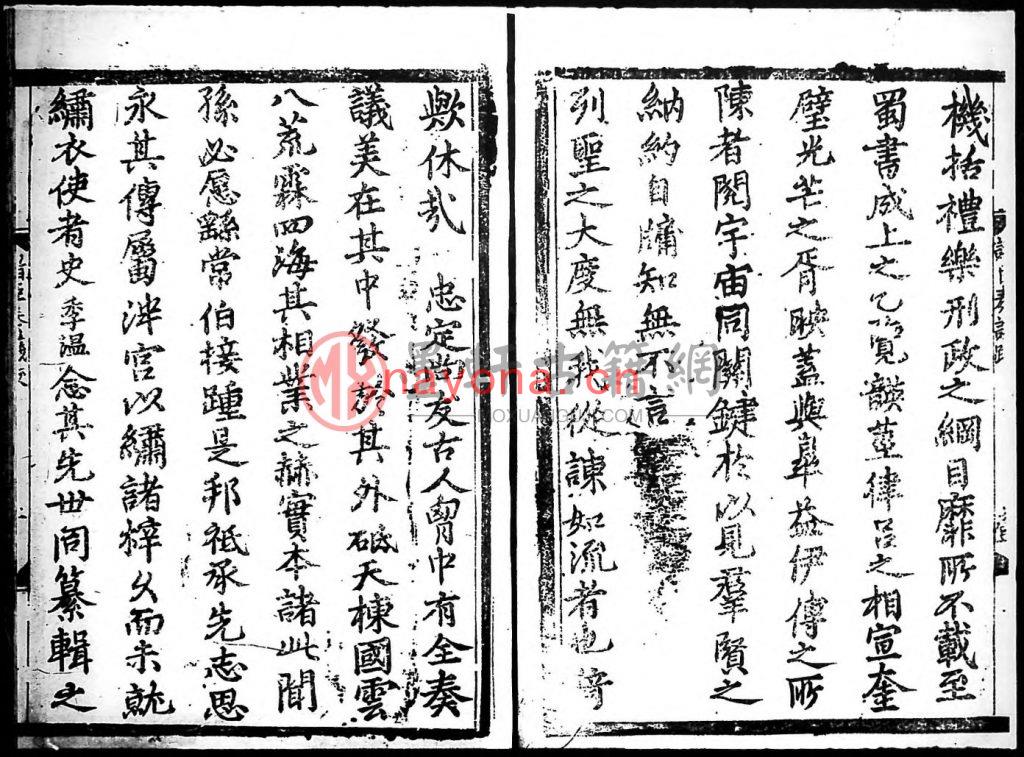 機括禮樂刑政之綱目靡所不載至
蜀書成上之乙覽韺莖律呂之相宣奎
璧光芒之胥映蓋與皐益伊傅之所
陳者閱宇宙同關鍵於以見羣賢之
納約自牖知無不言
列聖之大度無我從諫如流者也猗
歟休哉 忠定尚友古人胷中有全奏
議美在其中發 其外砥天棟國雲
八荒霖四海其相業之赫實本諸此聞
孫必愿繇常伯接踵是邦祗承先志思
永其傳屬泮宮以繡諸梓久而未就
繡衣使者史季温念其先世同纂輯之
墨軒古籍網
nayona.cn